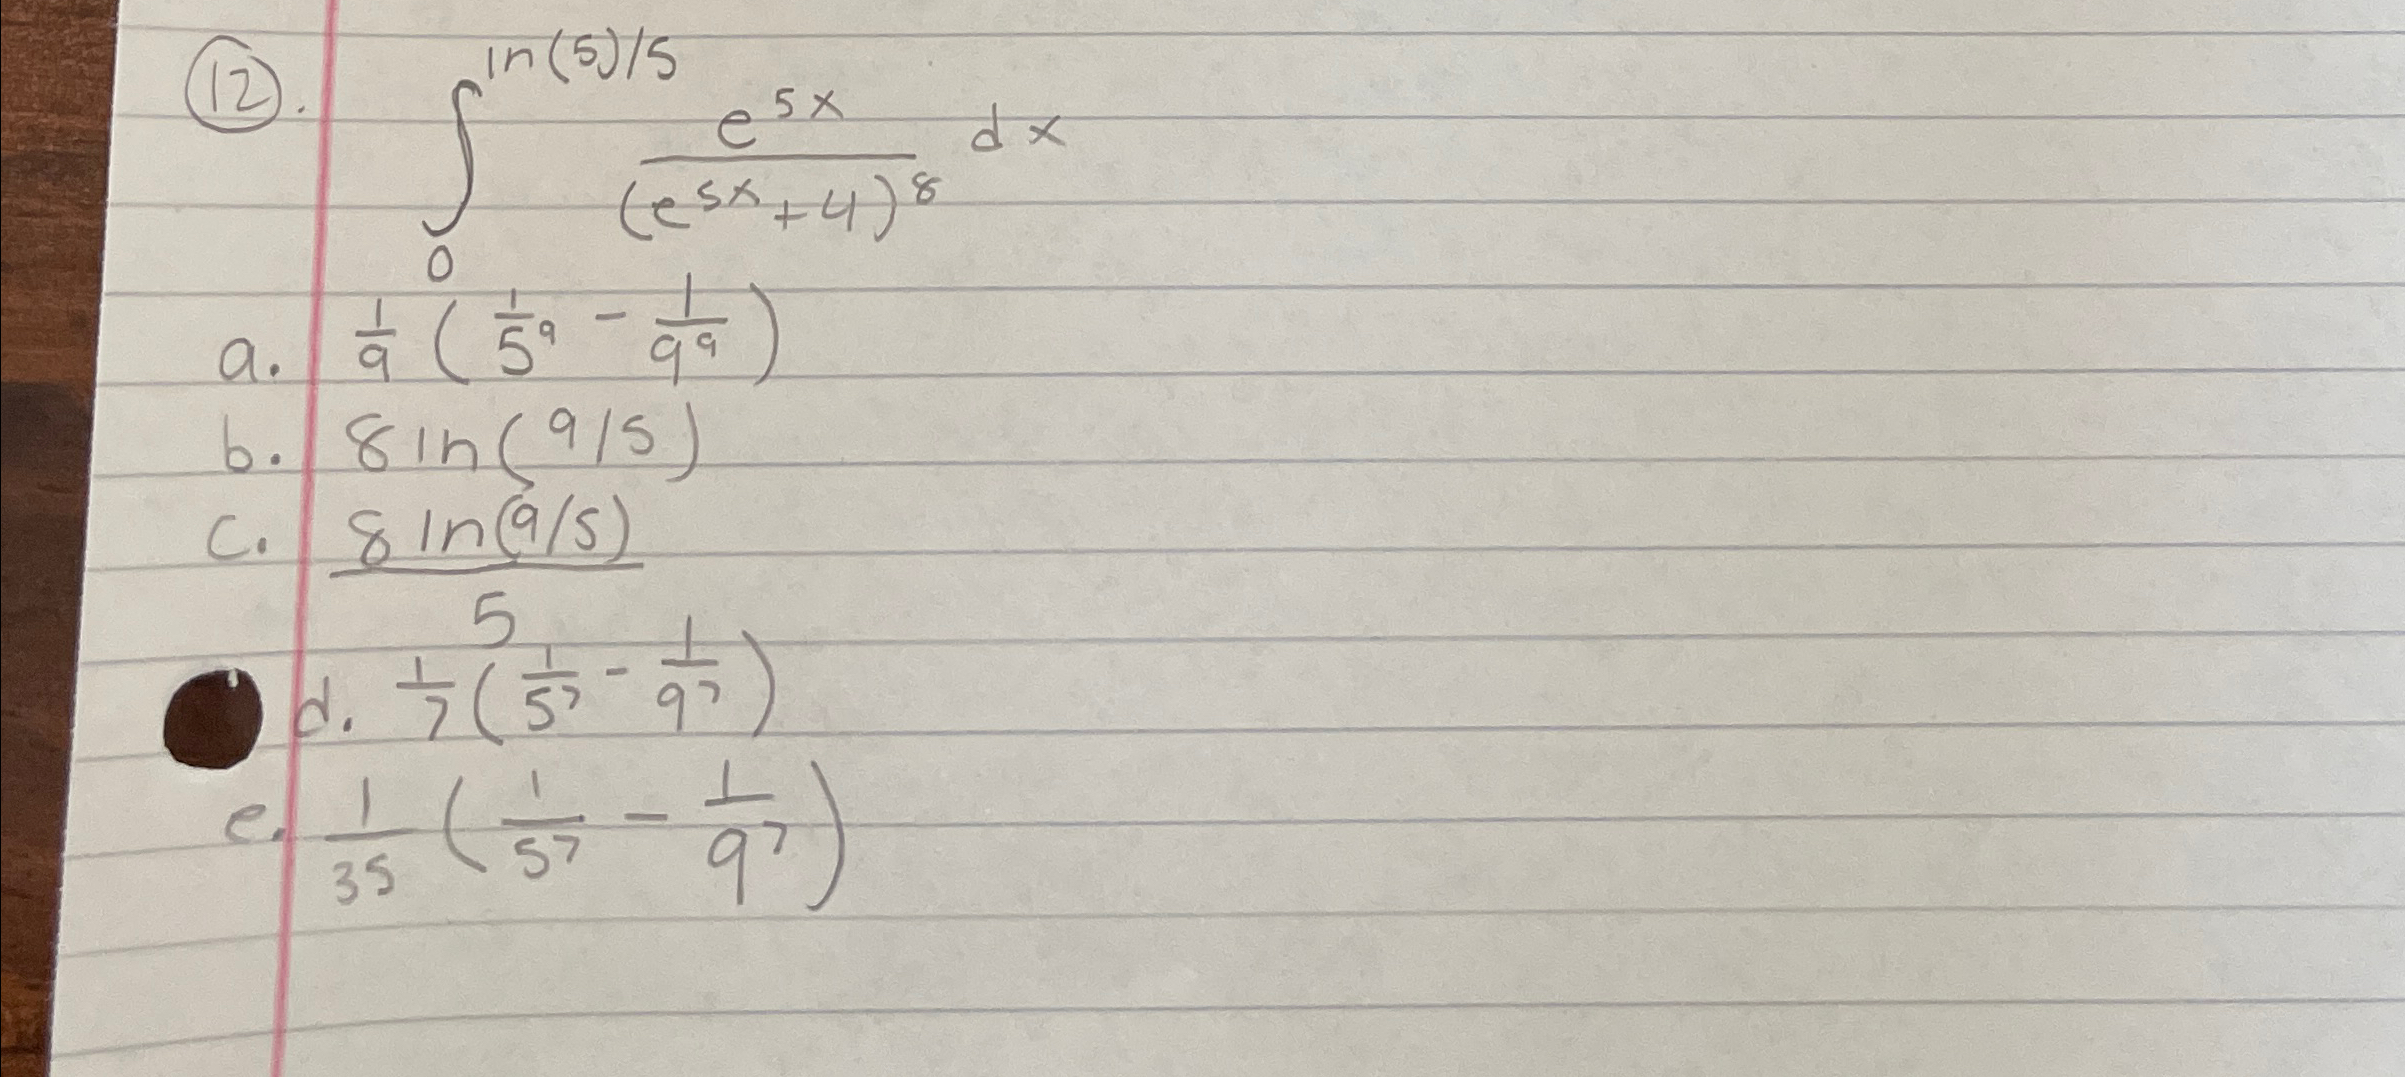 12.
∫₀^{ln(5)/5} e^{5x}/(e^{5x}+4)^8 dx
a. 1/9 (1/5^9 - 1/9^9)
b. 8 ln(9/5)
c. 8 ln(9/5)/5
d. 1/7 (1/5^7 - 1/9^7)
e. 1/35 (1/5^7 - 1/9^7)